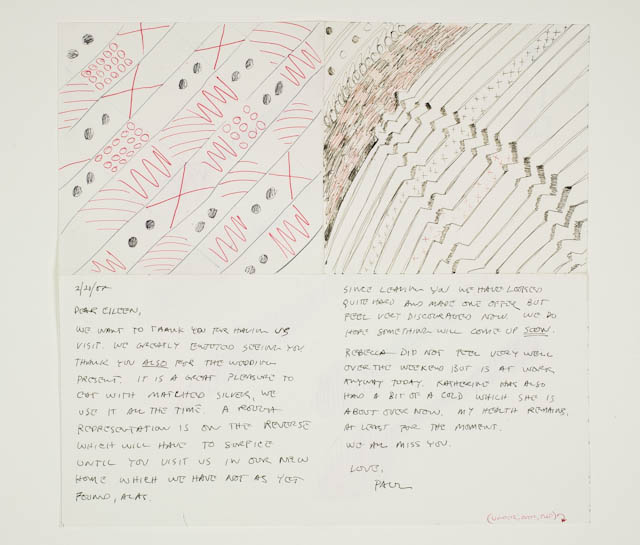 2/21/87
DEAR EILEEN,
WE WANT TO THANK YOU FOR HAVING US
VISIT. WE GREATLY ENJOYED SEEING YOU
THANK YOU ALSO FOR THE WEDDING
PRESENT. IT IS A GREAT PLEASURE TO
EAT WITH MATCHED SILVER, WE
USE IT ALL THE TIME. A ROUGH
REPRESENTATION IS ON THE REVERSE
WHICH WILL HAVE TO SUFFICE
UNTIL YOU VISIT US IN OUR NEW
HOME WHICH WE HAVE NOT AS YET
FOUND, ALAS.
SINCE LEAVING YOU WE HAVE LOOKED
QUITE HARD AND MADE ONE OFFER BUT
FEEL VERY DISCOURAGED NOW. WE DO
HOPE SOMETHING WILL COME UP SOON.
REBECCA DID NOT FEEL VERY WELL
OVER THE WEEKEND BUT IS AT WORK
ANYWAY TODAY. KATHERINE HAS ALSO
HAD A BIT OF A COLD WHICH SHE IS
ABOUT OVER NOW. MY HEALTH REMAINS,
AT LEAST FOR THE MOMENT.
WE ALL MISS YOU.
LOVE,
PAUL